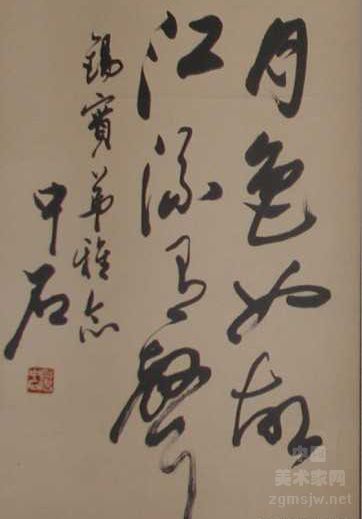 月色如故
江流有聲
錫寶弟雅念
中石
中国
美术家网
zgmsjw.net